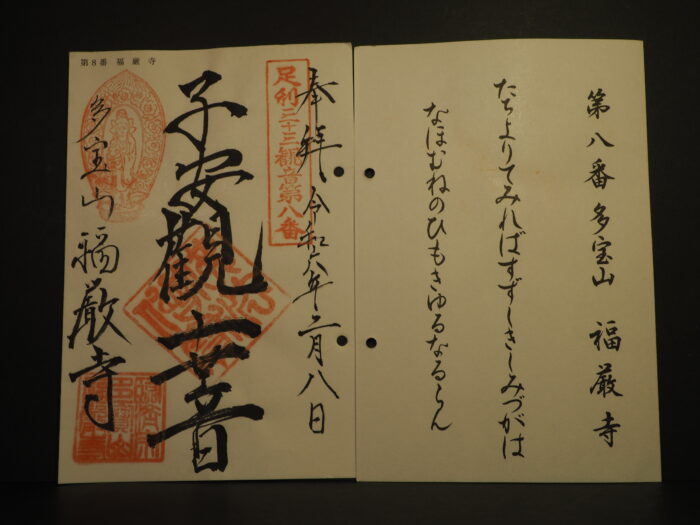 第八番多宝山 福厳寺
たちよりてみればすずしきしみづがは
なほむねのひもきゆるなるらん
第8番 福厳寺
奉拝 令和六年二月八日
足利三十三観音第八番
子安觀世音
多宝山 福厳寺